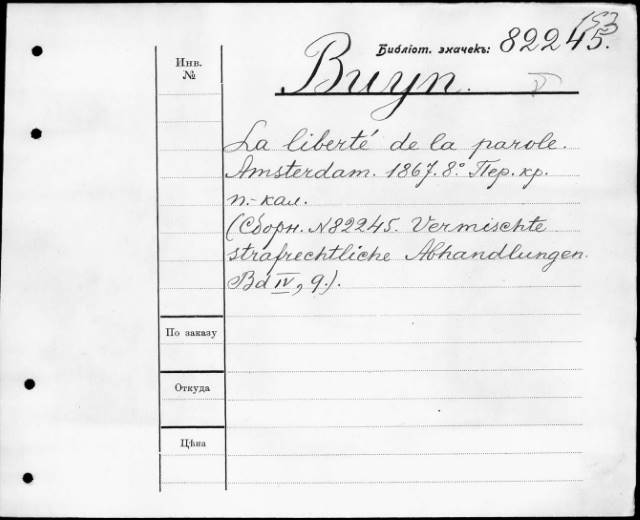 153
Библіот. значекъ: 82245.
Инв.
№
Buyn.
La liberté de la parole.
Amsterdam. 1867. 8.° Пер. кр.
п.-кал.
(Сборн. N82245. Vermischte
strafrechtliche Abhandlungen.
Bd IV, 9.).
По заказу
Откуда
Цѣна